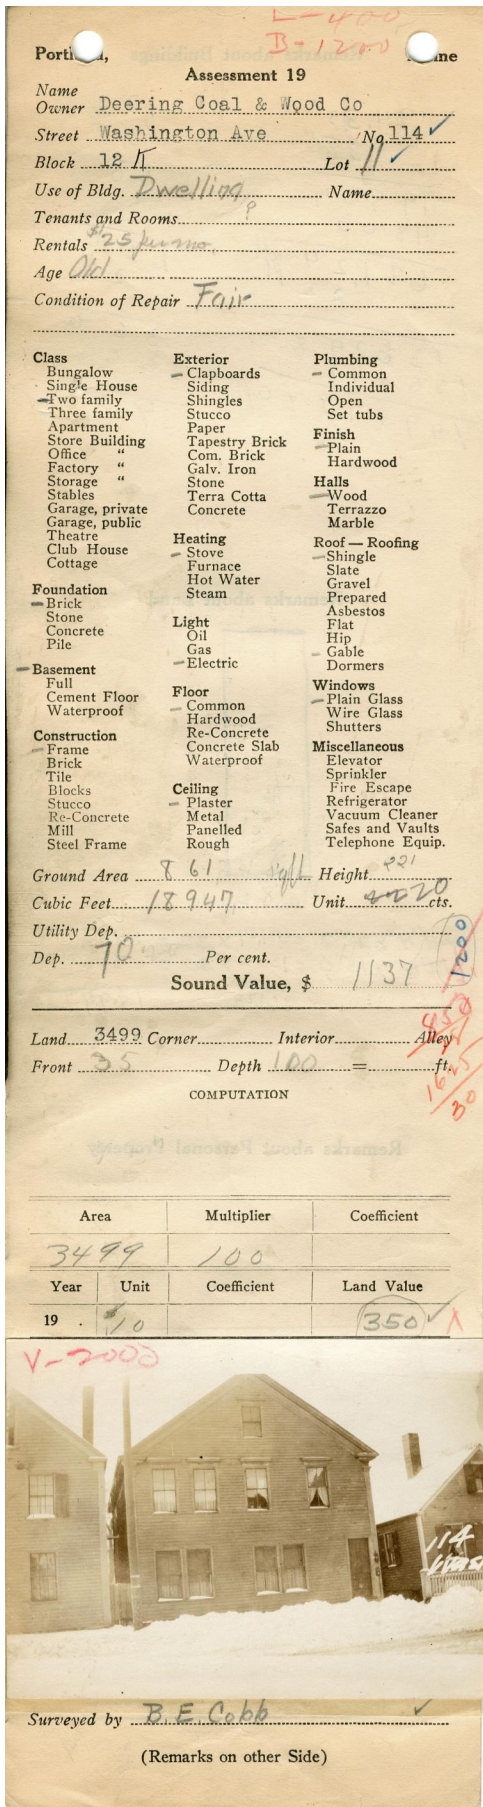 L-400
B-1200
Portland, Maine
Assessment 19
Name
Owner Deering Coal & Wood Co
Street Washington Ave No 114 ✓
Block 12 K Lot 11 ✓
Use of Bldg. Dwelling Name
Tenants and Rooms ?
Rentals $25 per mo.
Age Old
Condition of Repair Fair
Class
Bungalow
Single House
Two family
Three family
Apartment
Store Building
Office "
Factory "
Storage "
Stables
Garage, private
Garage, public
Theatre
Club House
Cottage
Foundation
Brick
Stone
Concrete
Pile
Basement
Full
Cement Floor
Waterproof
Construction
Frame
Brick
Tile
Blocks
Stucco
Re-Concrete
Mill
Steel Frame
Exterior
Clapboards
Siding
Shingles
Stucco
Paper
Tapestry Brick
Com. Brick
Galv. Iron
Stone
Terra Cotta
Concrete
Heating
Stove
Furnace
Hot Water
Steam
Light
Oil
Gas
Electric
Floor
Common
Hardwood
Re-Concrete
Concrete Slab
Waterproof
Ceiling
Plaster
Metal
Panelled
Rough
Plumbing
Common
Individual
Open
Set tubs
Finish
Plain
Hardwood
Halls
Wood
Terrazzo
Marble
Roof — Roofing
Shingle
Slate
Gravel
Prepared
Asbestos
Flat
Hip
Gable
Dormers
Windows
Plain Glass
Wire Glass
Shutters
Miscellaneous
Elevator
Sprinkler
Fire Escape
Refrigerator
Vacuum Cleaner
Safes and Vaults
Telephone Equip.
Ground Area 861 sq ft Height 22'
Cubic Feet 18947 Unit 20 cts.
Utility Dep.
Dep. 70 Per cent.
Sound Value, $ 1137
1200
Land 3499 Corner Interior Alley
Front 35 Depth 100 = ft.
COMPUTATION
Area Multiplier Coefficient
3499 100
Year Unit Coefficient Land Value
19 $10 350 ✓
V-2000
114
Wash
Surveyed by B. E. Cobb ✓
(Remarks on other Side)